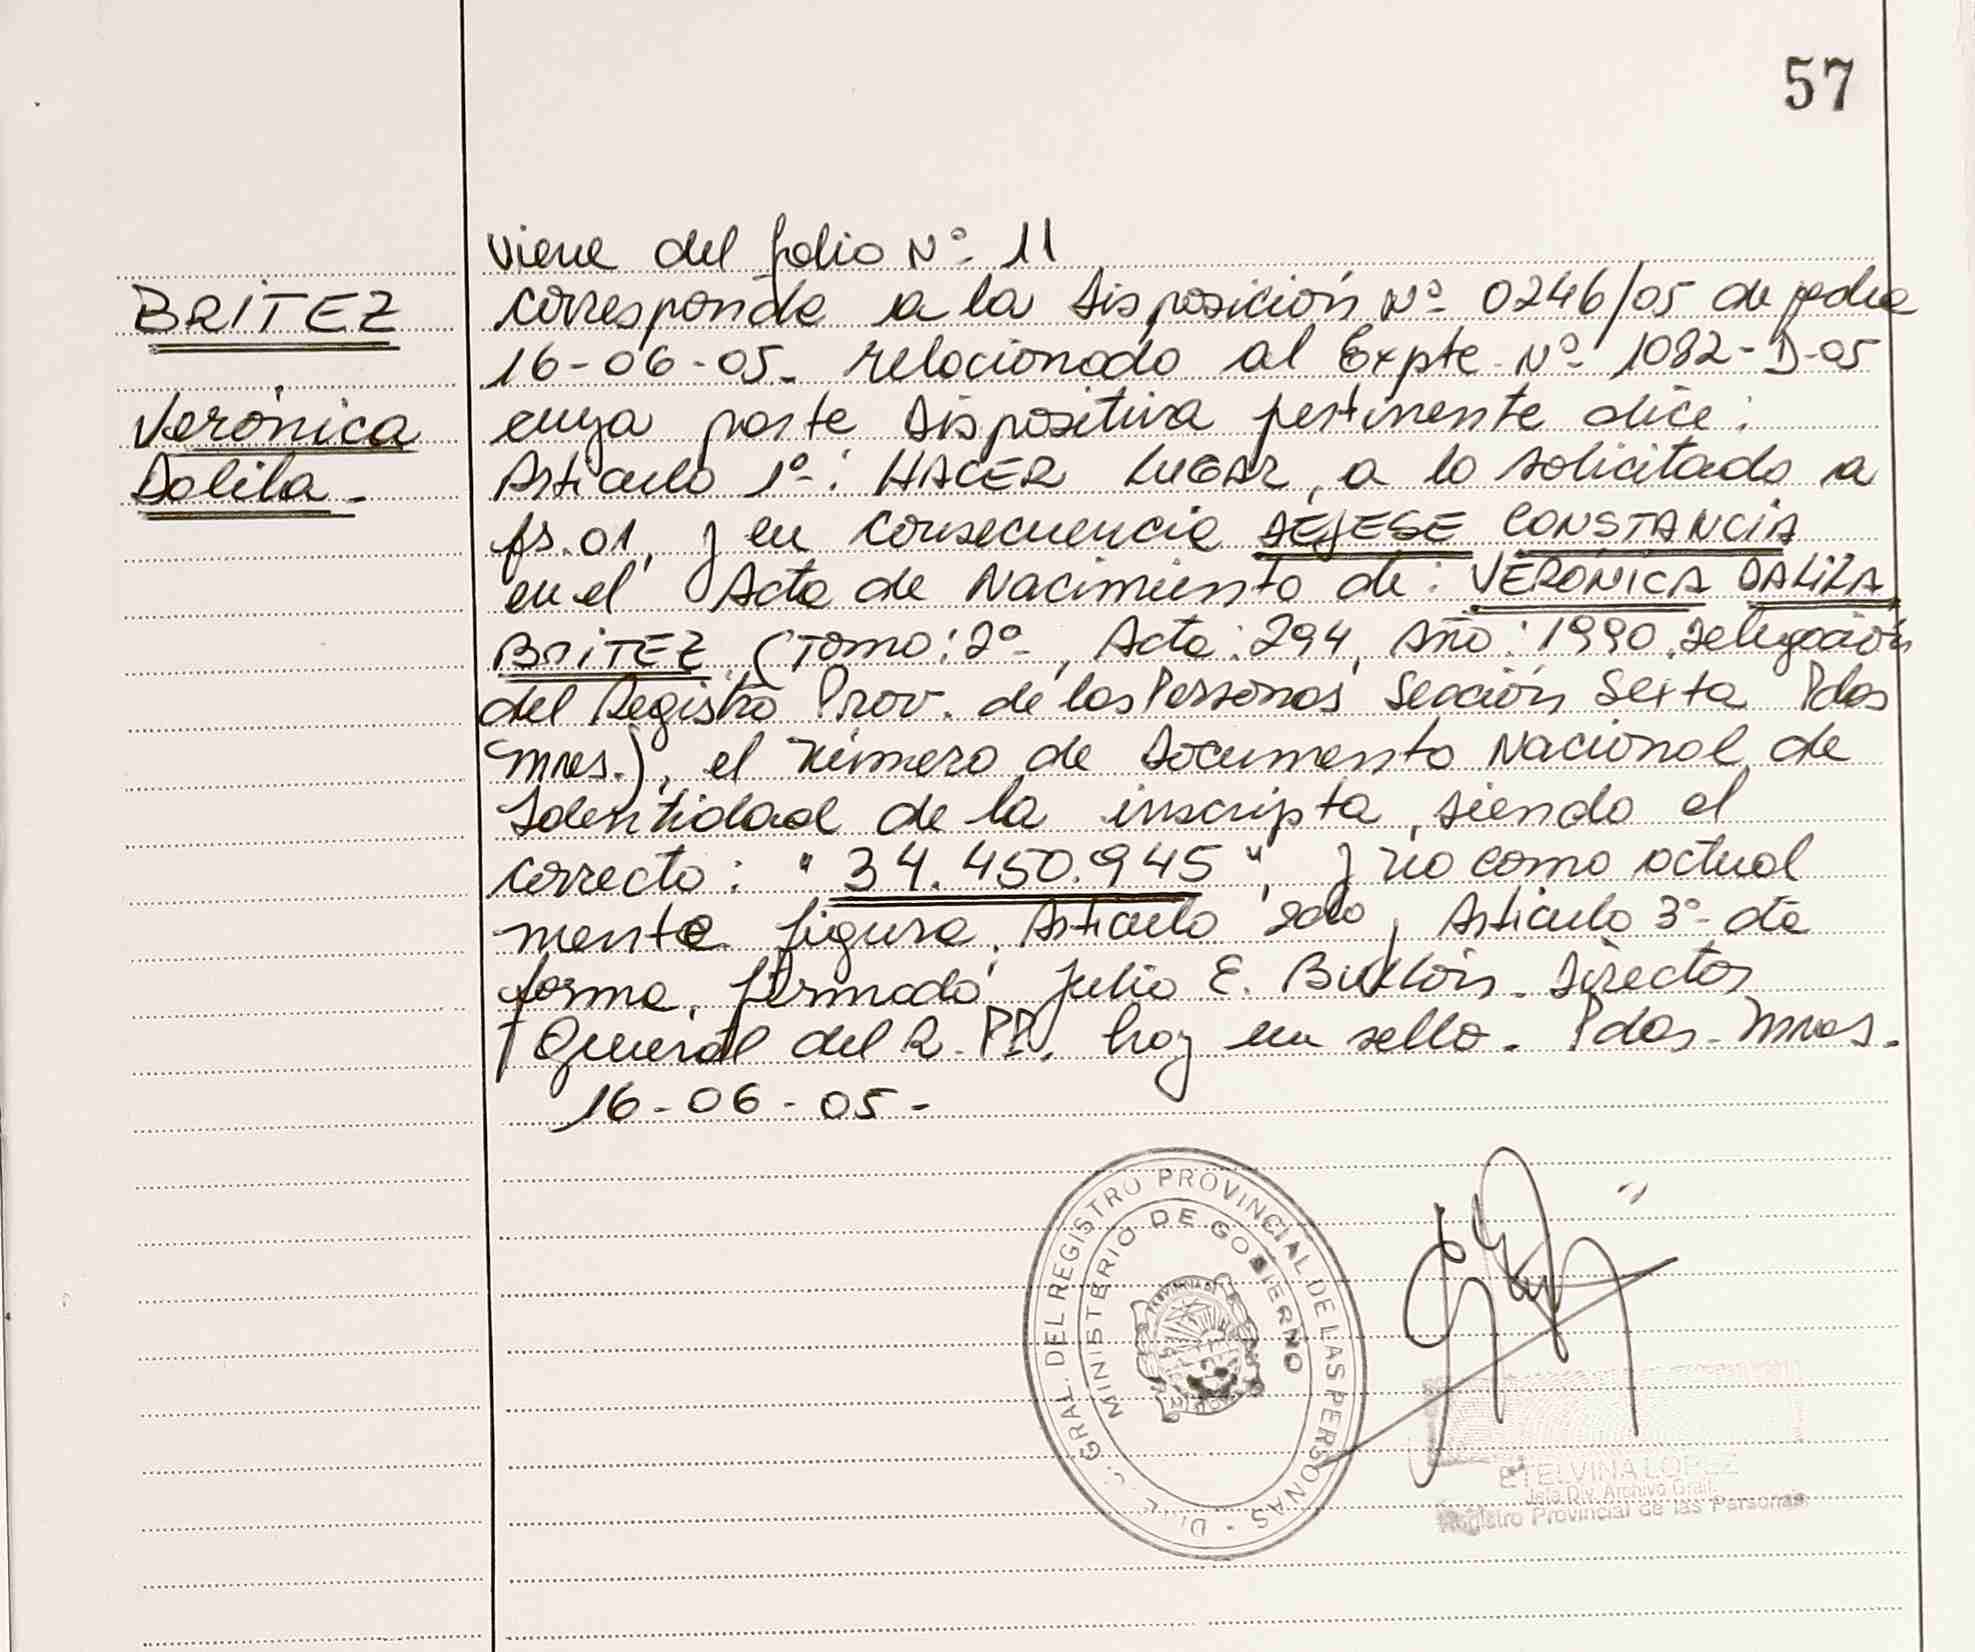 57
viene del folio Nº 11
BRITEZ
corresponde a la Disposición Nº 0246/05 de fecha
16-06-05. relacionado al Expte Nº 1082-D-05
Verónica
cuya parte Dispositiva pertinente dice:
Dalila.
Artículo 1º: HACER LUGAR, a lo solicitado a
fs.01, y en consecuencia DÉJESE CONSTANCIA
en el Acta de Nacimiento de: VERÓNICA DALILA
BRITEZ (Tomo: 2º, Acta: 294, Año: 1990. Delegación
del Registro Prov. de las Personas Sección Sexta Pdas
Mnes.), el número de Documento Nacional de
Identidad de la inscripta, siendo el
correcto: "34.450.945", y no como actual
mente figura. Artículo 2do y Artículo 3º de
forma. firmado Julio E. Director
General del R.PP. hay un sello. Pdas. Mnes.
16-06-05-
GRAL. DEL REGISTRO PROVINCIAL DE LAS PERSONAS
MINISTERIO DE GOBIERNO
ETELVINA LOPEZ
Jefa Div. Archivo Gral.
Registro Provincial de las Personas